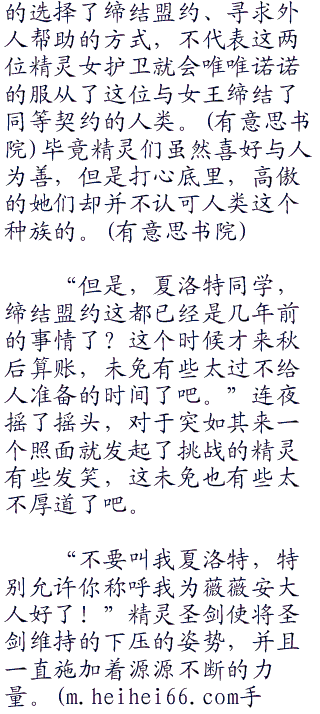 的选择了缔结盟约、寻求外
人帮助的方式，不代表这两
位精灵女护卫就会唯唯诺诺
的服从了这位与女王缔结了
同等契约的人类。(有意思书
院)毕竟精灵们虽然喜好与人
为善，但是打心底里，高傲
的她们却并不认可人类这个
种族的。(有意思书院)
“但是，夏洛特同学，
缔结盟约这都已经是几年前
的事情了？这个时候才来秋
后算账，未免有些太过不给
人准备的时间了吧。”连夜
摇了摇头，对于突如其来一
个照面就发起了挑战的精灵
有些发笑，这未免也有些太
不厚道了吧。
“不要叫我夏洛特，特
别允许你称呼我为薇薇安大
人好了！”精灵圣剑使将圣
剑维持的下压的姿势，并且
一直施加着源源不断的力
量。(m.heihei66.com手